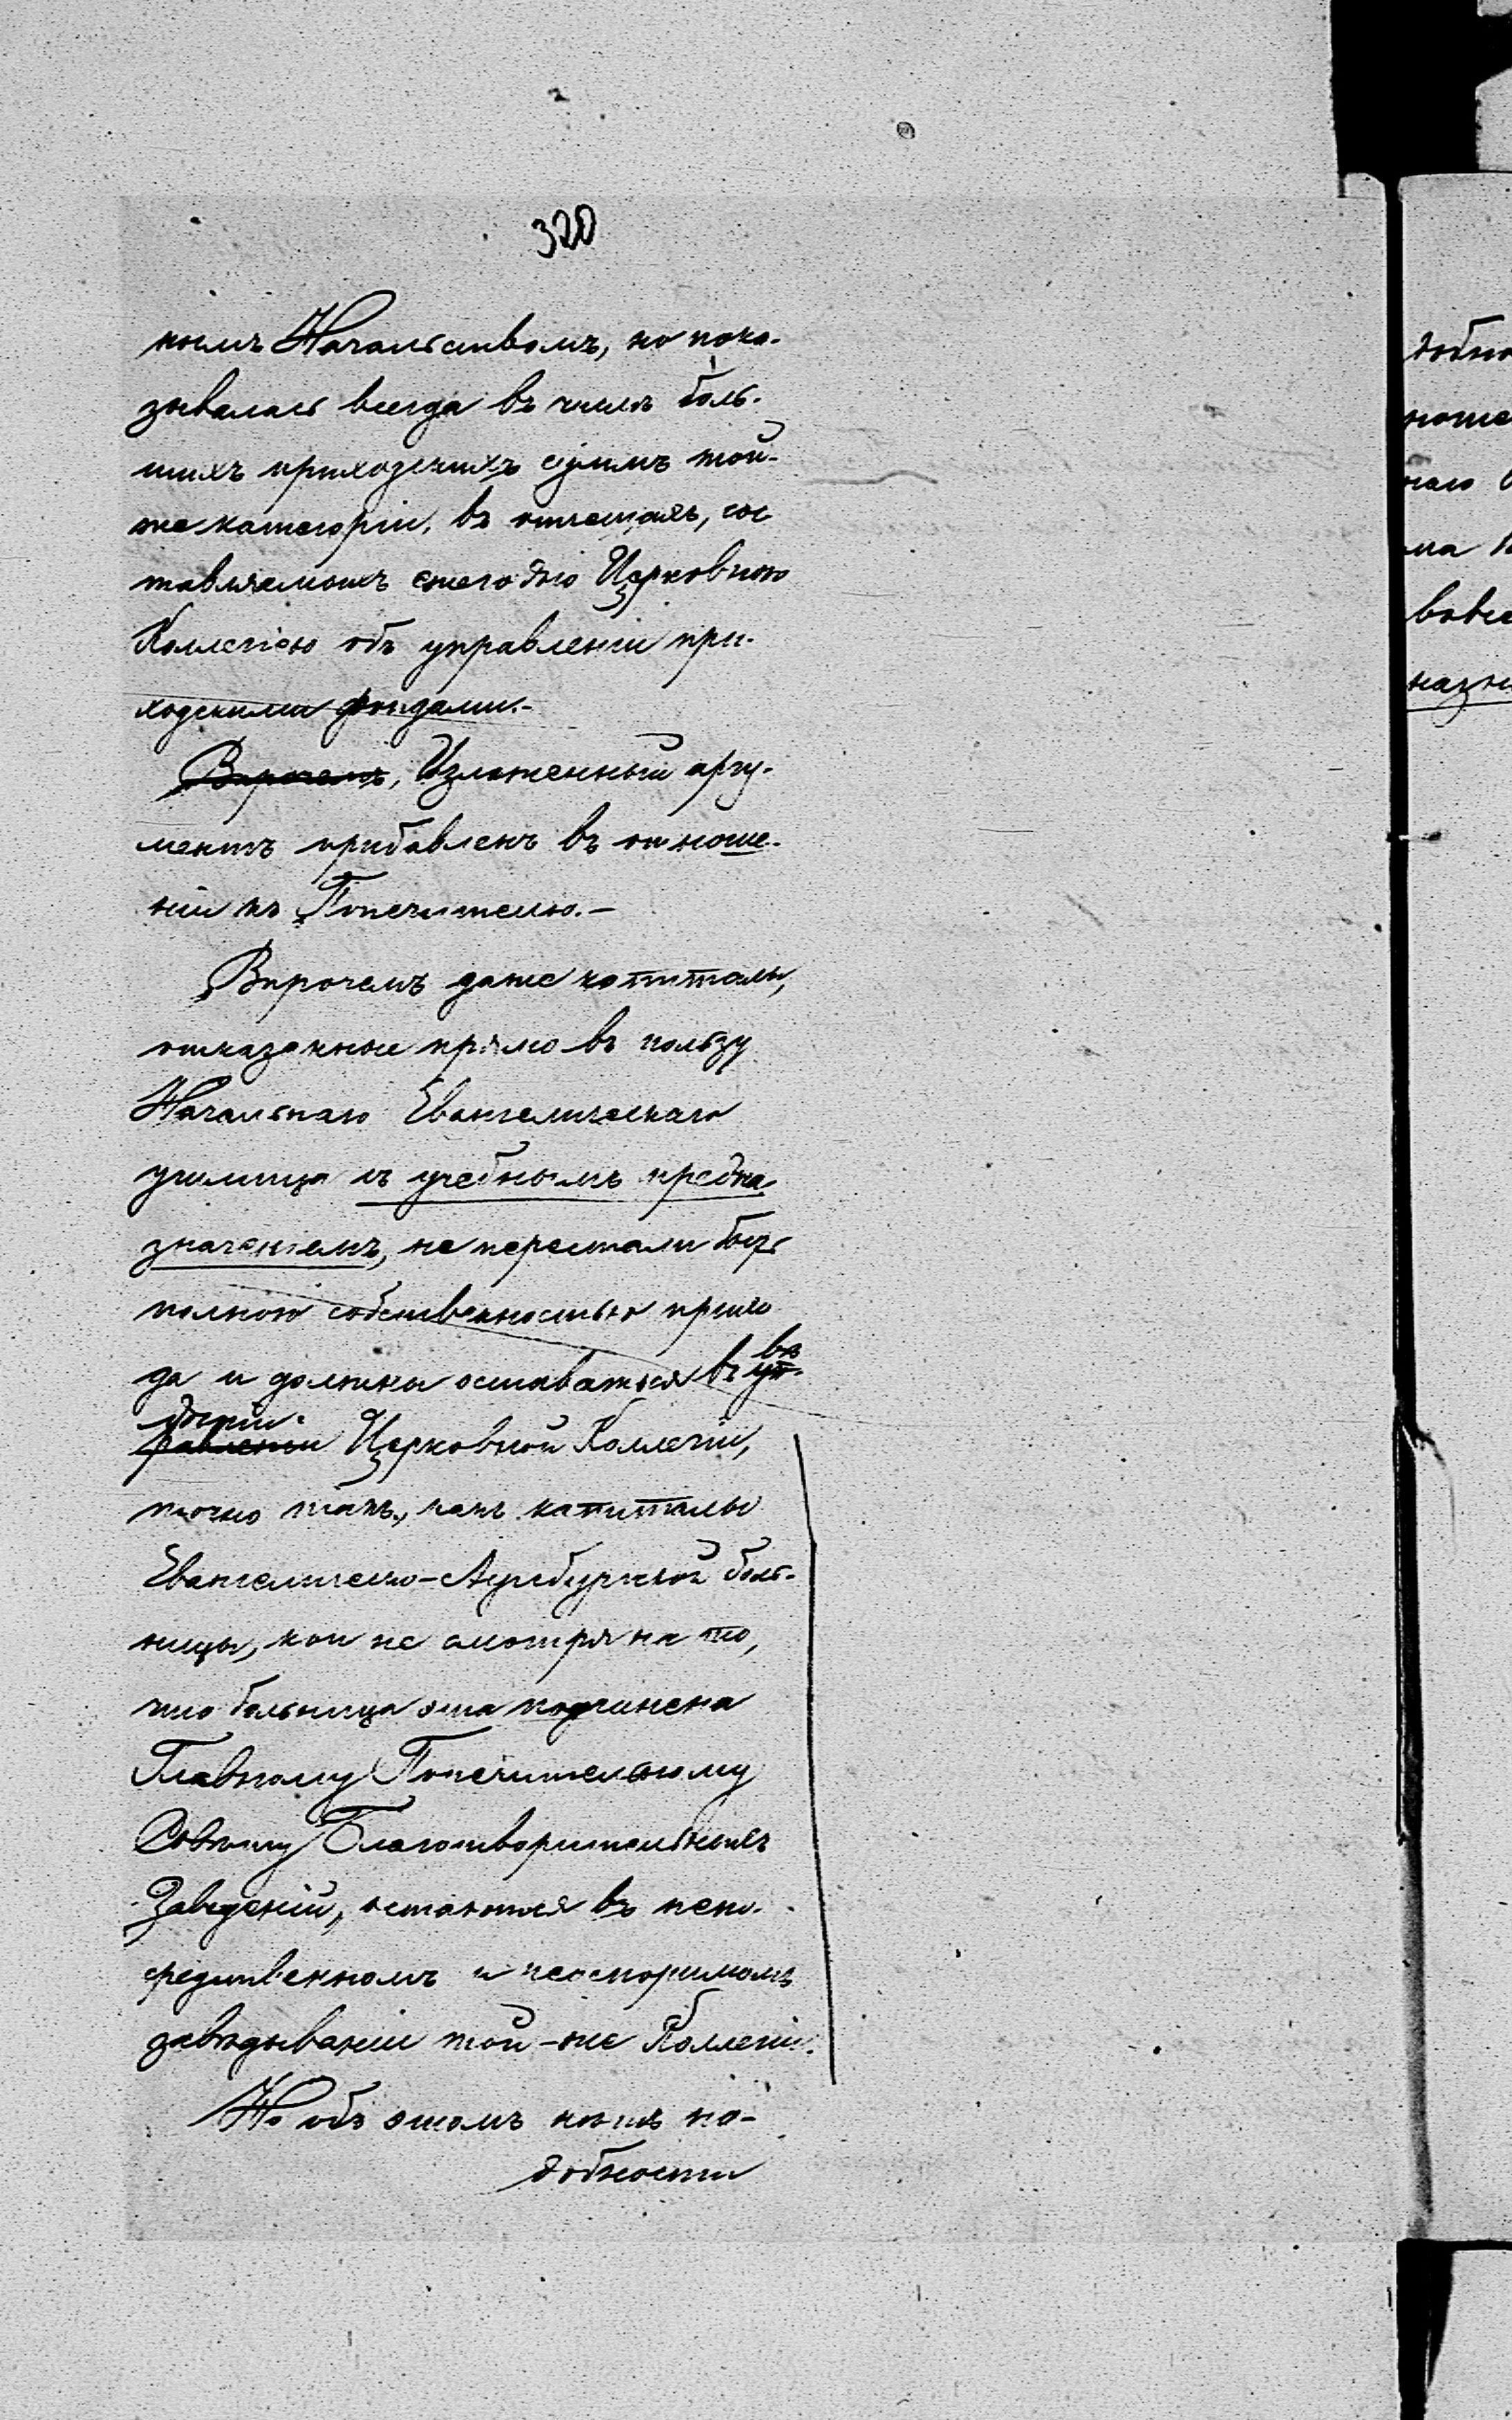 320
нымъ Начальствомъ, но пока-
зывалась всегда въ числѣ боль-
шихъ приходскихъ суммъ той-
же категоріи, въ отчетахъ, сос
тавляемыхъ ежегодно Церковною
Коллегіею объ управленіи при-
ходскими фондами.-
Впрочемъ, Изложенный аргу-
ментъ прибавленъ въ отноше-
ніи къ Попечителю.-
Впрочемъ даже капиталы,
отказанные прямо въ пользу
Начальнаго Евангелическаго
училища съ учебнымъ предна-
значеніемъ, не перестали быть
полною собственностью прихо
да и должны оставаться въ уп-
въ
дѣніи
равленіи Церковной Коллегіи,
точно такъ, какъ капиталы
Евангелическо-Аугсбургской боль-
ницы, кои не смотря на то,
что больница эта подчинена
Главному Попечительному
Совѣту Благотворительныхъ
Заведеній, остаются въ непо-
средственномъ и неоспоримомъ
завѣдываніи той-же Коллегіи.
Но объ этомъ нѣтъ на-
добности
добно
ноше
наго
ма
назн